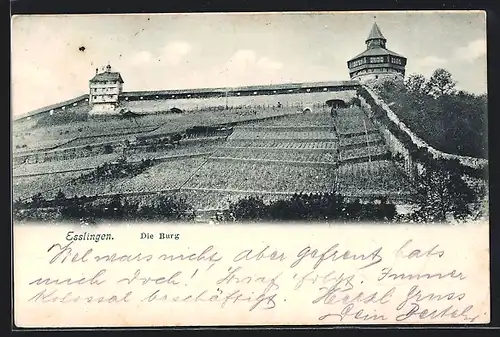 Esslingen. Die Burg
Viel war's nicht, aber gefreut hats
mich doch! Brief folgt. Immer
kolossal beschäftigt. Herzl. Gruss
Dein